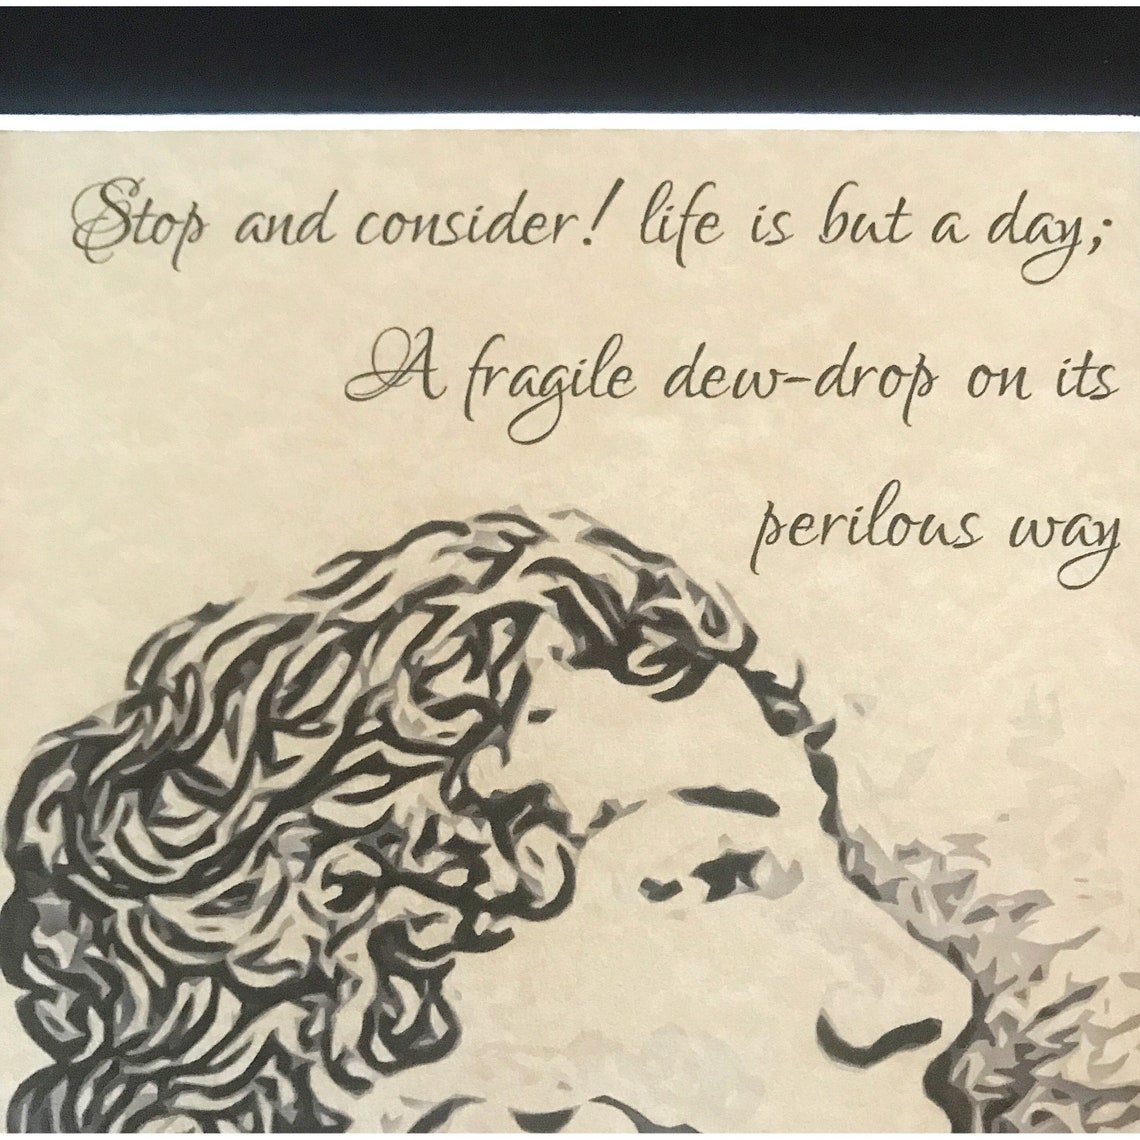 Stop and consider! life is but a day;
A fragile dew-drop on its
perilous way